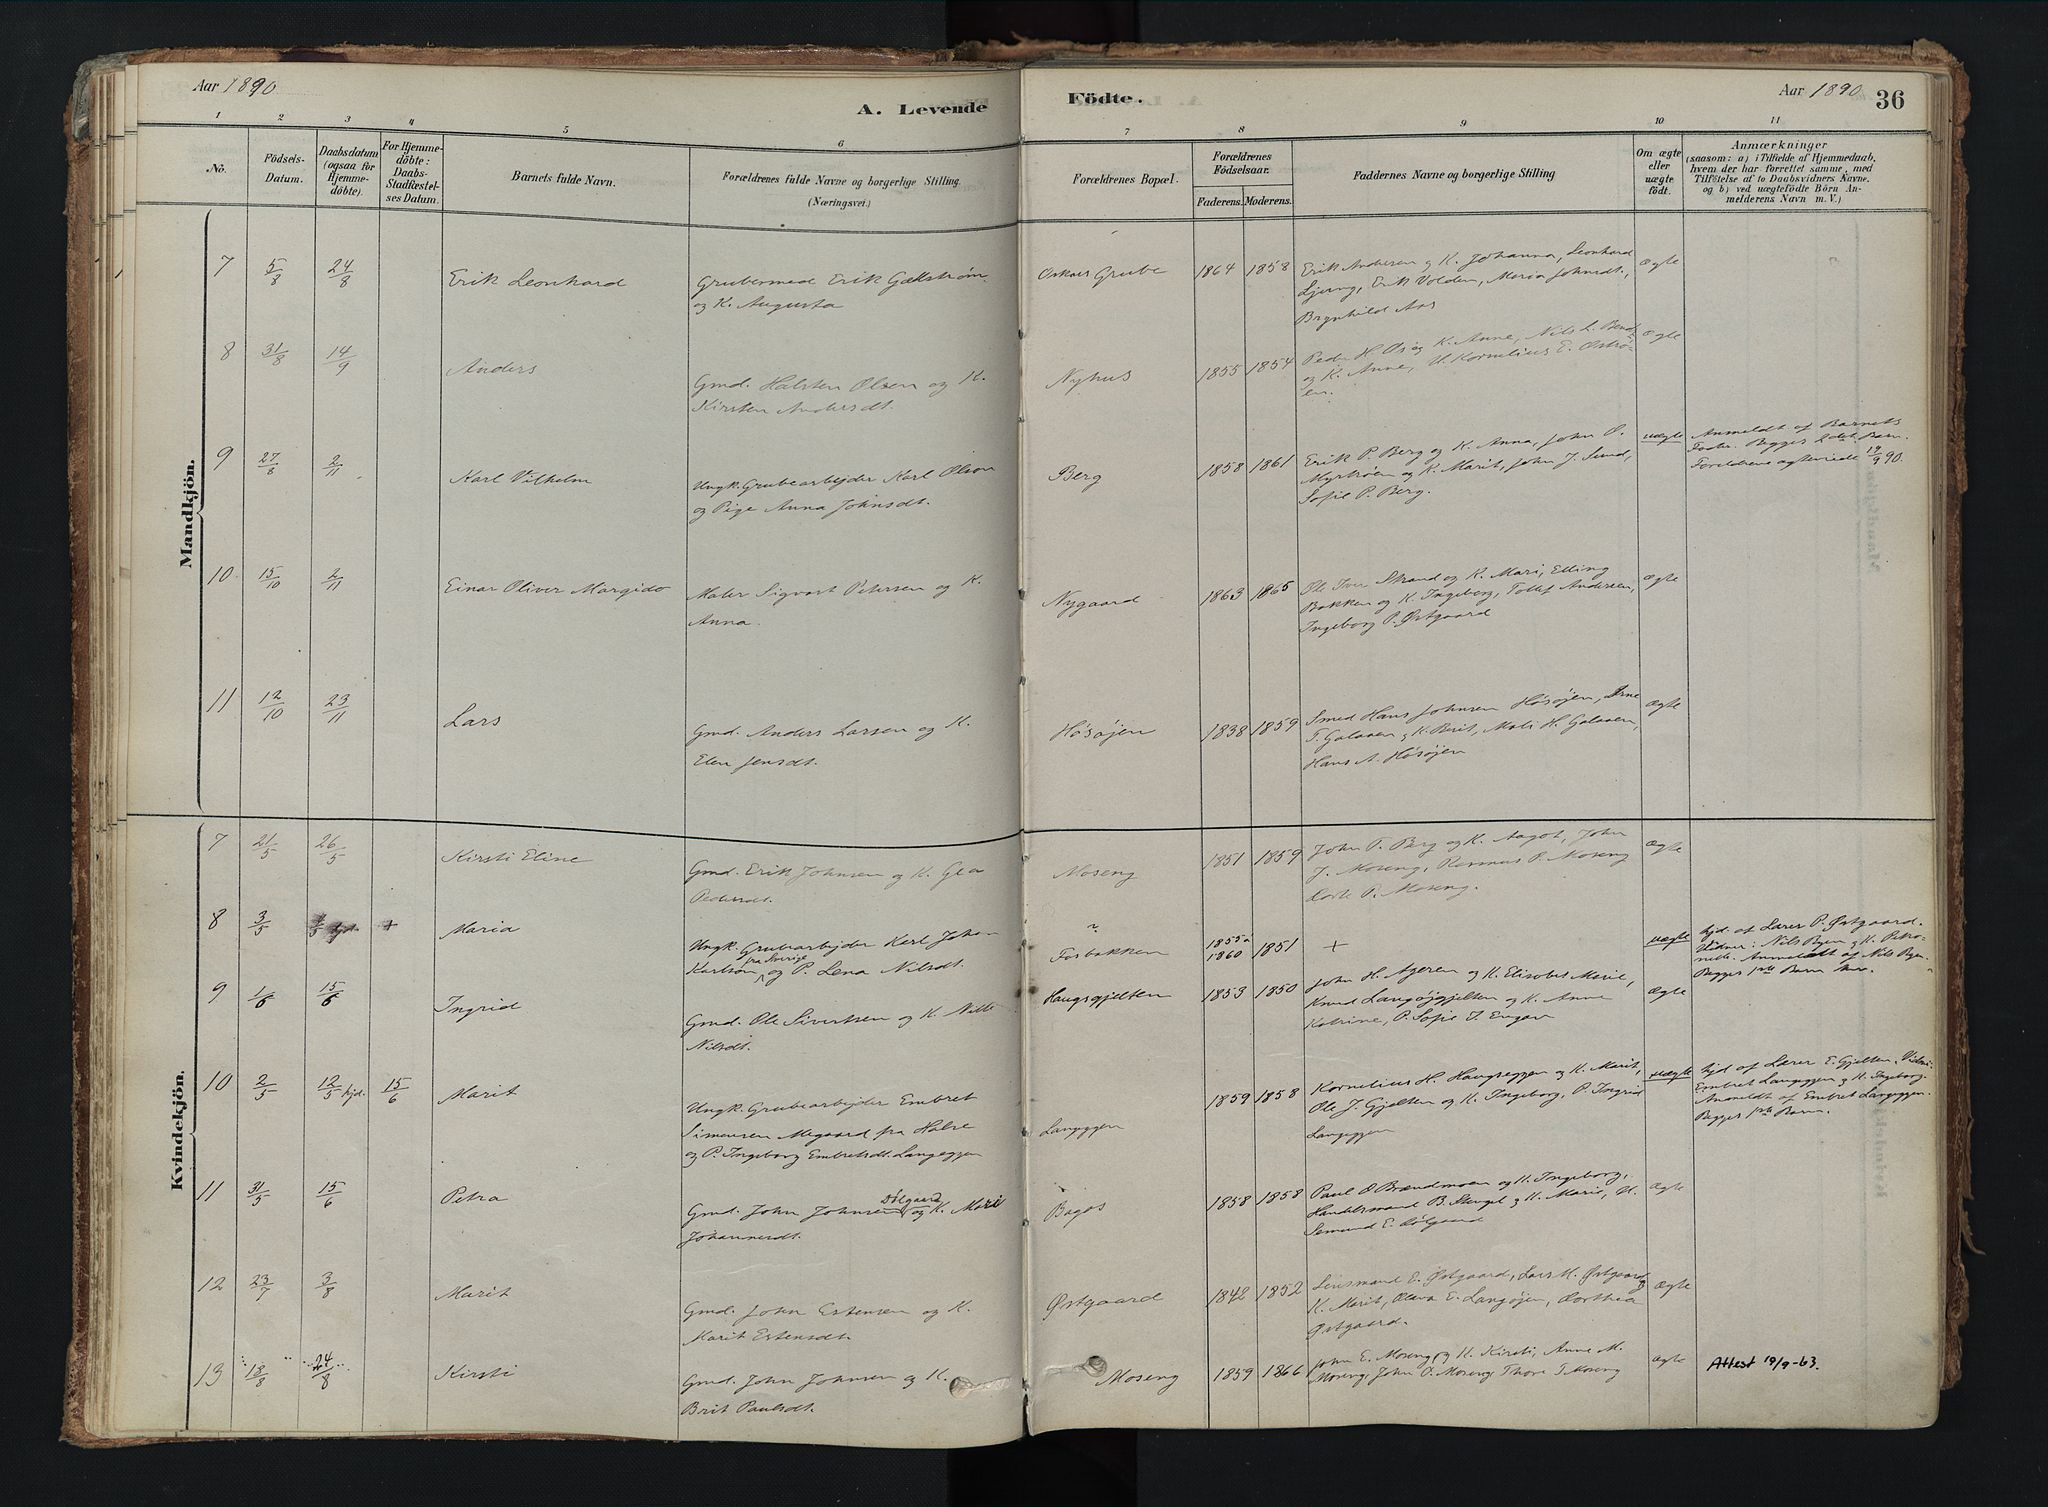 Aar 1890
A. Levende
Födte.
Aar 1890
36
1 2 3 4 5 6 7 8 9 10 11
No.
Födsels-
Datum.
Daabsdatum
(ogsaa for
Hjemme-
döbte).
For Hjemme-
döbte:
Daabs-
Stadfæstel-
ses Datum.
Barnets fulde Navn.
Forældrenes fulde Navne og borgerlige Stilling.
(Næringsvei.)
Forældrenes Bopæl.
Forældrenes
Födselsaar.
Faderens. Moderens.
Faddernes Navne og borgerlige Stilling
Om ægte
eller
uægte
födt.
Anmærkninger
(saasom: a) i Tilfælde af Hjemmedaab,
hvem der har forrettet samme, med
Tilföielse af to Daabsvidners Navne,
og b) ved uægtefödte Börn An-
melderens Navn m. V.)
Mandkjön.
7 5/8 24/8 Erik Leonhard
Grubesmed Erik
og K. Augusta
Oskars Grube 1864 1858
Erik Andersen og K. Johanna, Leonhard
Ljung, Erik Volden, Maria Johnsdt.,
Brynhild Aas
ægte
8 31/8 14/9 Anders
Gmd. Halsten Olsen og K.
Kirsten Andersdt.
Nyhus 1855 1854
Peder H. Os og K. Anne, Nils L.
og K. Anne, U. Kornelius E. Østrø-
en.
ægte
9 27/8 2/11 Karl Vilhelm
Ungk. Grubearbejder Karl Olsen
og Pige Anna Johnsdt.
Berg 1858 1861
Erik P. Berg og K. Anna, John O.
Myrtrøen og K. Marit, John J. Sund,
Sofie P. Berg.
uægte
Anmeldt af Barnets
Fader. Begges 2det Barn.
Forældrene ægteviede 14/9 90.
10 15/10 2/11 Einar Oliver Margido
Maler Sigvart Petersen og K.
Anna.
Nygaard 1863 1865
Ole Iver Strand og K. Mari, Elling
Bakken og K. Ingeborg, Tollef Andersen,
Ingeborg P. Østgaard
ægte
11 12/10 23/11 Lars
Gmd. Anders Larsen og K.
Elen Jensdt.
Høsøjen 1838 1859
Smed Hans Johnsen Høsøjen, Arne
T. Galaaen og K. Berit, Mali H. Galaaen,
Hans A. Høsøjen
ægte
Kvindekjön.
7 21/5 26/5 Kirsti Eline
Gmd. Erik Johnsen og K.
Pedersdt.
Moseng 1851 1859
John T. Berg og K. Aagot, John
J. Moseng, Rasmus P. Moseng
Dorte P. Moseng.
ægte
8 3/5 hjd. + Maria
Ungk. Grubearbejder Karl Johan
Karlsøn fra Sverige og P. Lena Nilsdt.
Forbakken 1855 a 1860 1851
+
uægte
hjd. af Lærer P. Østgaard.
Vidner: Nils Byen og K. Petro-
nelle. Anmeldt af Nils Byen.
Begges 1ste Barn
9 1/6 15/6 Ingrid
Gmd. Ole Sivertsen og K.
Nilsdt.
Haugsgjelten 1853 1850
John H. Ageren og K. Elisabet Marie,
Knud Langøjgjelten og K. Anne
Katrine, P. Sofie J. Engan
ægte
10 2/5 12/5 hjd. 15/6 Marit
Ungk. Grubearbejder Embret
Simensen Megaard fra Halse
og P. Ingeborg Embretsdt. Langeggen
Langeggen 1859 1858
Kornelius H. Haugseggen og K. Marit,
Ole J. Gjelten og K. Ingeborg, P. Ingrid
Langeggen
uægte
hjd af Lærer E. Gjelten. Vidner:
Embret Langeggen og K. Ingeborg.
Anmeldt af Embret Langeggen.
Begges 1ste Barn.
11 31/5 15/6 Petra
Gmd. John Johnsen Dølgaard og K. Mari
Johannesdt.
Bagos 1858 1858
Paul O Brændmoen og K. Ingeborg,
Handelsmand B. Stengel og K. Marie, U.
Semund E. Dølgaard
ægte
12 23/7 3/8 Marit
Gmd. John Estensen og K.
Marit Estensdt.
Østgaard 1842 1852
Lensmand E. Østgaard, Lars M. Østgaard og
K. Marit, Olava E. Langøjen, Dorthea
Østgaard.
ægte
13 18/8 24/8 Kirsti
Gmd. John Johnsen og K.
Brit Paulsdt.
Moseng 1859 1866
John E. Moseng og K. Kirsti, Anne M.
Moseng, John O. Moseng, Thore T. Moseng
ægte
Attest 19/9-63.